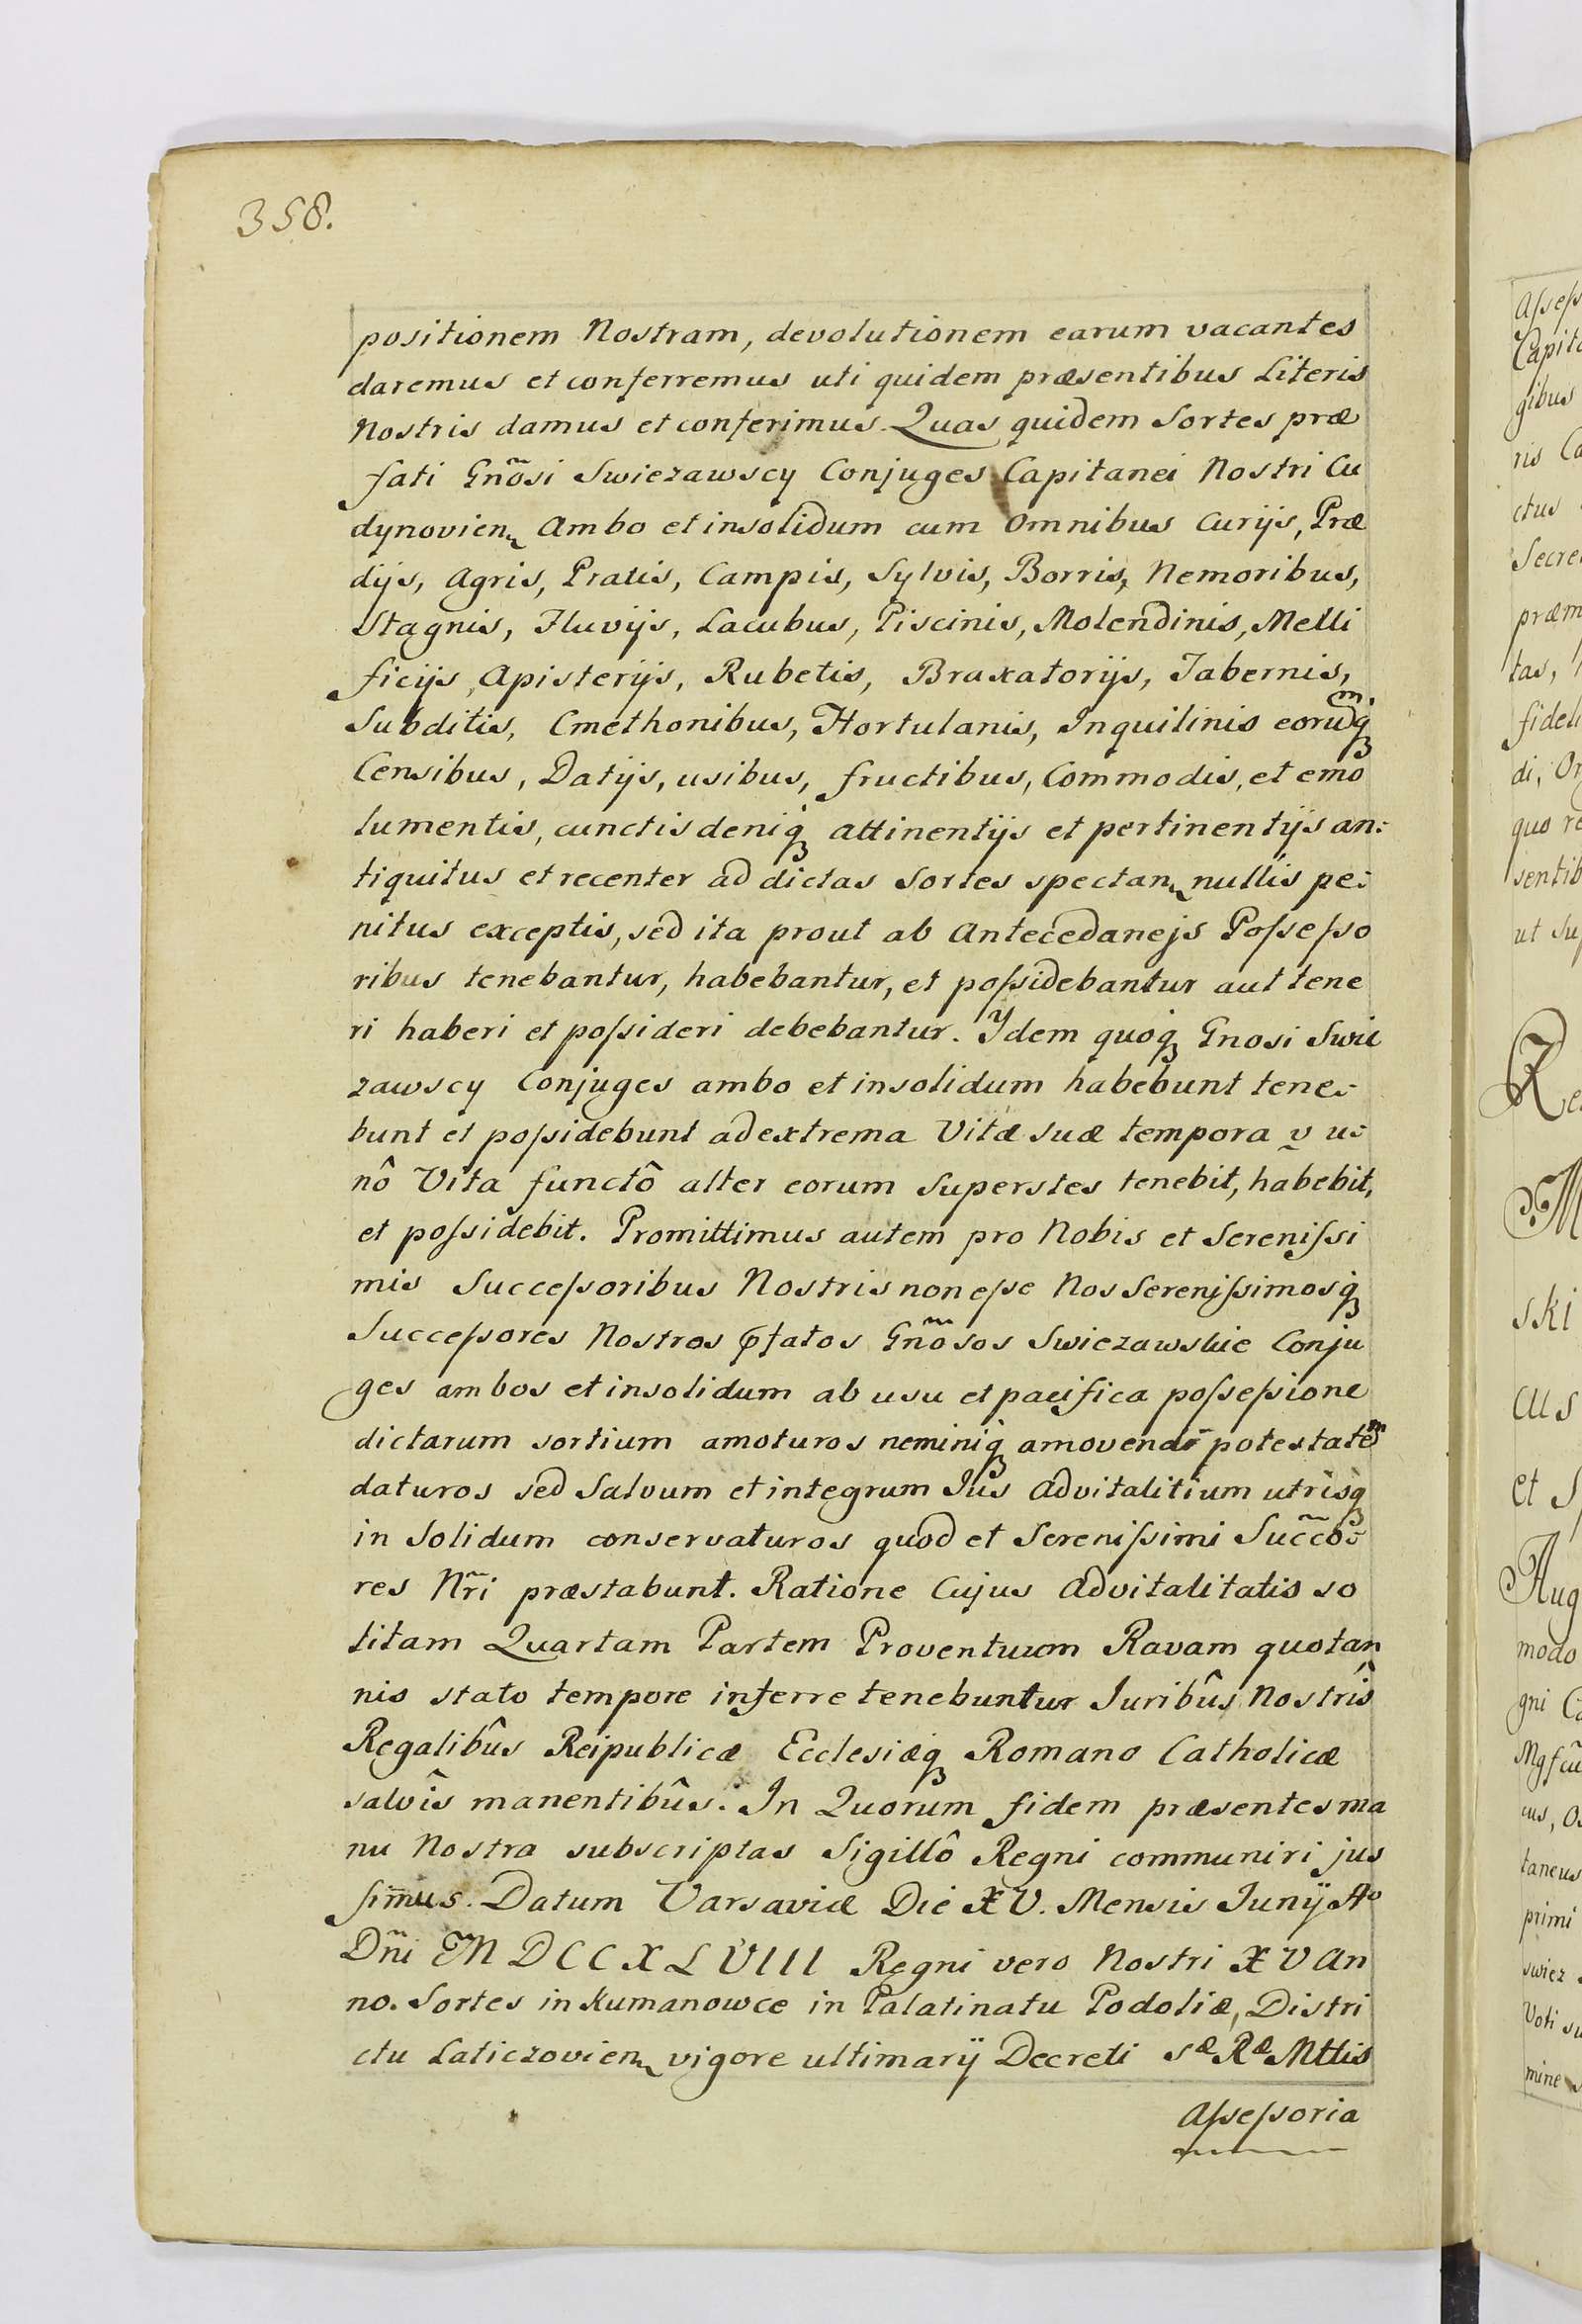 358.
positionem Nostram, devolutionem earum vacantes
daremus et conferremus uti quidem præsentibus Literis
Nostris damus et conferimus. Quas quidem Sortes præ
fati Gñosi Swiezawscy Conjuges Capitanei Nostri Cu
dynovien, Ambo et insolidum cum Omnibus Curijs, Præ
dijs, Agris, Pratis, Campis, Sylvis, Borris, Nemoribus,
Stagnis, Fluvijs, Lacubus, Piscinis, Molendinis, Melli
ficijs, Apisterijs, Rubetis, Braxatorijs, Tabernis,
Subditis, Cmethonibus, Hortulanis, Inquilinis eorumq́
Censibus, Datijs, usibus, fructibus, Commodis, et emo
lumentis, cunctis deniq́ attinentijs et pertinentijs an:
tiquitus et recenter ad dictas Sortes spectan, nullis pe:
nitus exceptis, sed ita prout ab Antecedanejs Poſseſso
ribus tenebantur, habebantur, et poſsidebantur aut tene
ri haberi et poſsideri debebantur. Ydem quoq́ Gnosi Swie
zawscy Conjuges ambo et insolidum habebunt tene:
bunt et poſsidebunt ad extrema Vitæ suæ tempora v̰ u:
nô Vita functô alter eorum Superstes tenebit, habebit,
et poſsidebit. Promittimus autem pro Nobis et Sereniſsi
mis Succeſsoribus Nostris non eſse Nos Sereniſsimosq́
Succeſsores Nostros ꝓfatos Gñosos Swiezawskie Conju
ges ambos et insolidum ab usu et pacifica poſseſsione
dictarum sortium amoturos neminiq́ amovendi potestatem
daturos sed Salvum et integrum Jus Advitalitium utrisq́
in Solidum conservaturos quod et Sereniſsimi Succ̃o:
res Nr̃i præstabunt. Ratione Cujus Advitalitatis so
litam Quartam Partem Proventuum Ravam quotan
nis stato tempore inferre tenebuntur Juribûs Nostrîs
Regalibûs Reipublicæ Ecclesiæq́ Romano Catholicæ
salvîs manentibûs. In Quorum fidem præsentes ma
nu Nostra subscriptas Sigillô Regni communiri jus
simus. Datum Varsaviæ Die XV. Mensis Junÿ Aº
Dñi MDCCXLVIII Regni vero Nostri XV An
no. Sortes in Kumanowce in Palatinatu Podoliæ, Distri
ctu Laticzovien, vigore ultimarÿ Decreti Sæ Ræ Mttis
Aſseſsoria